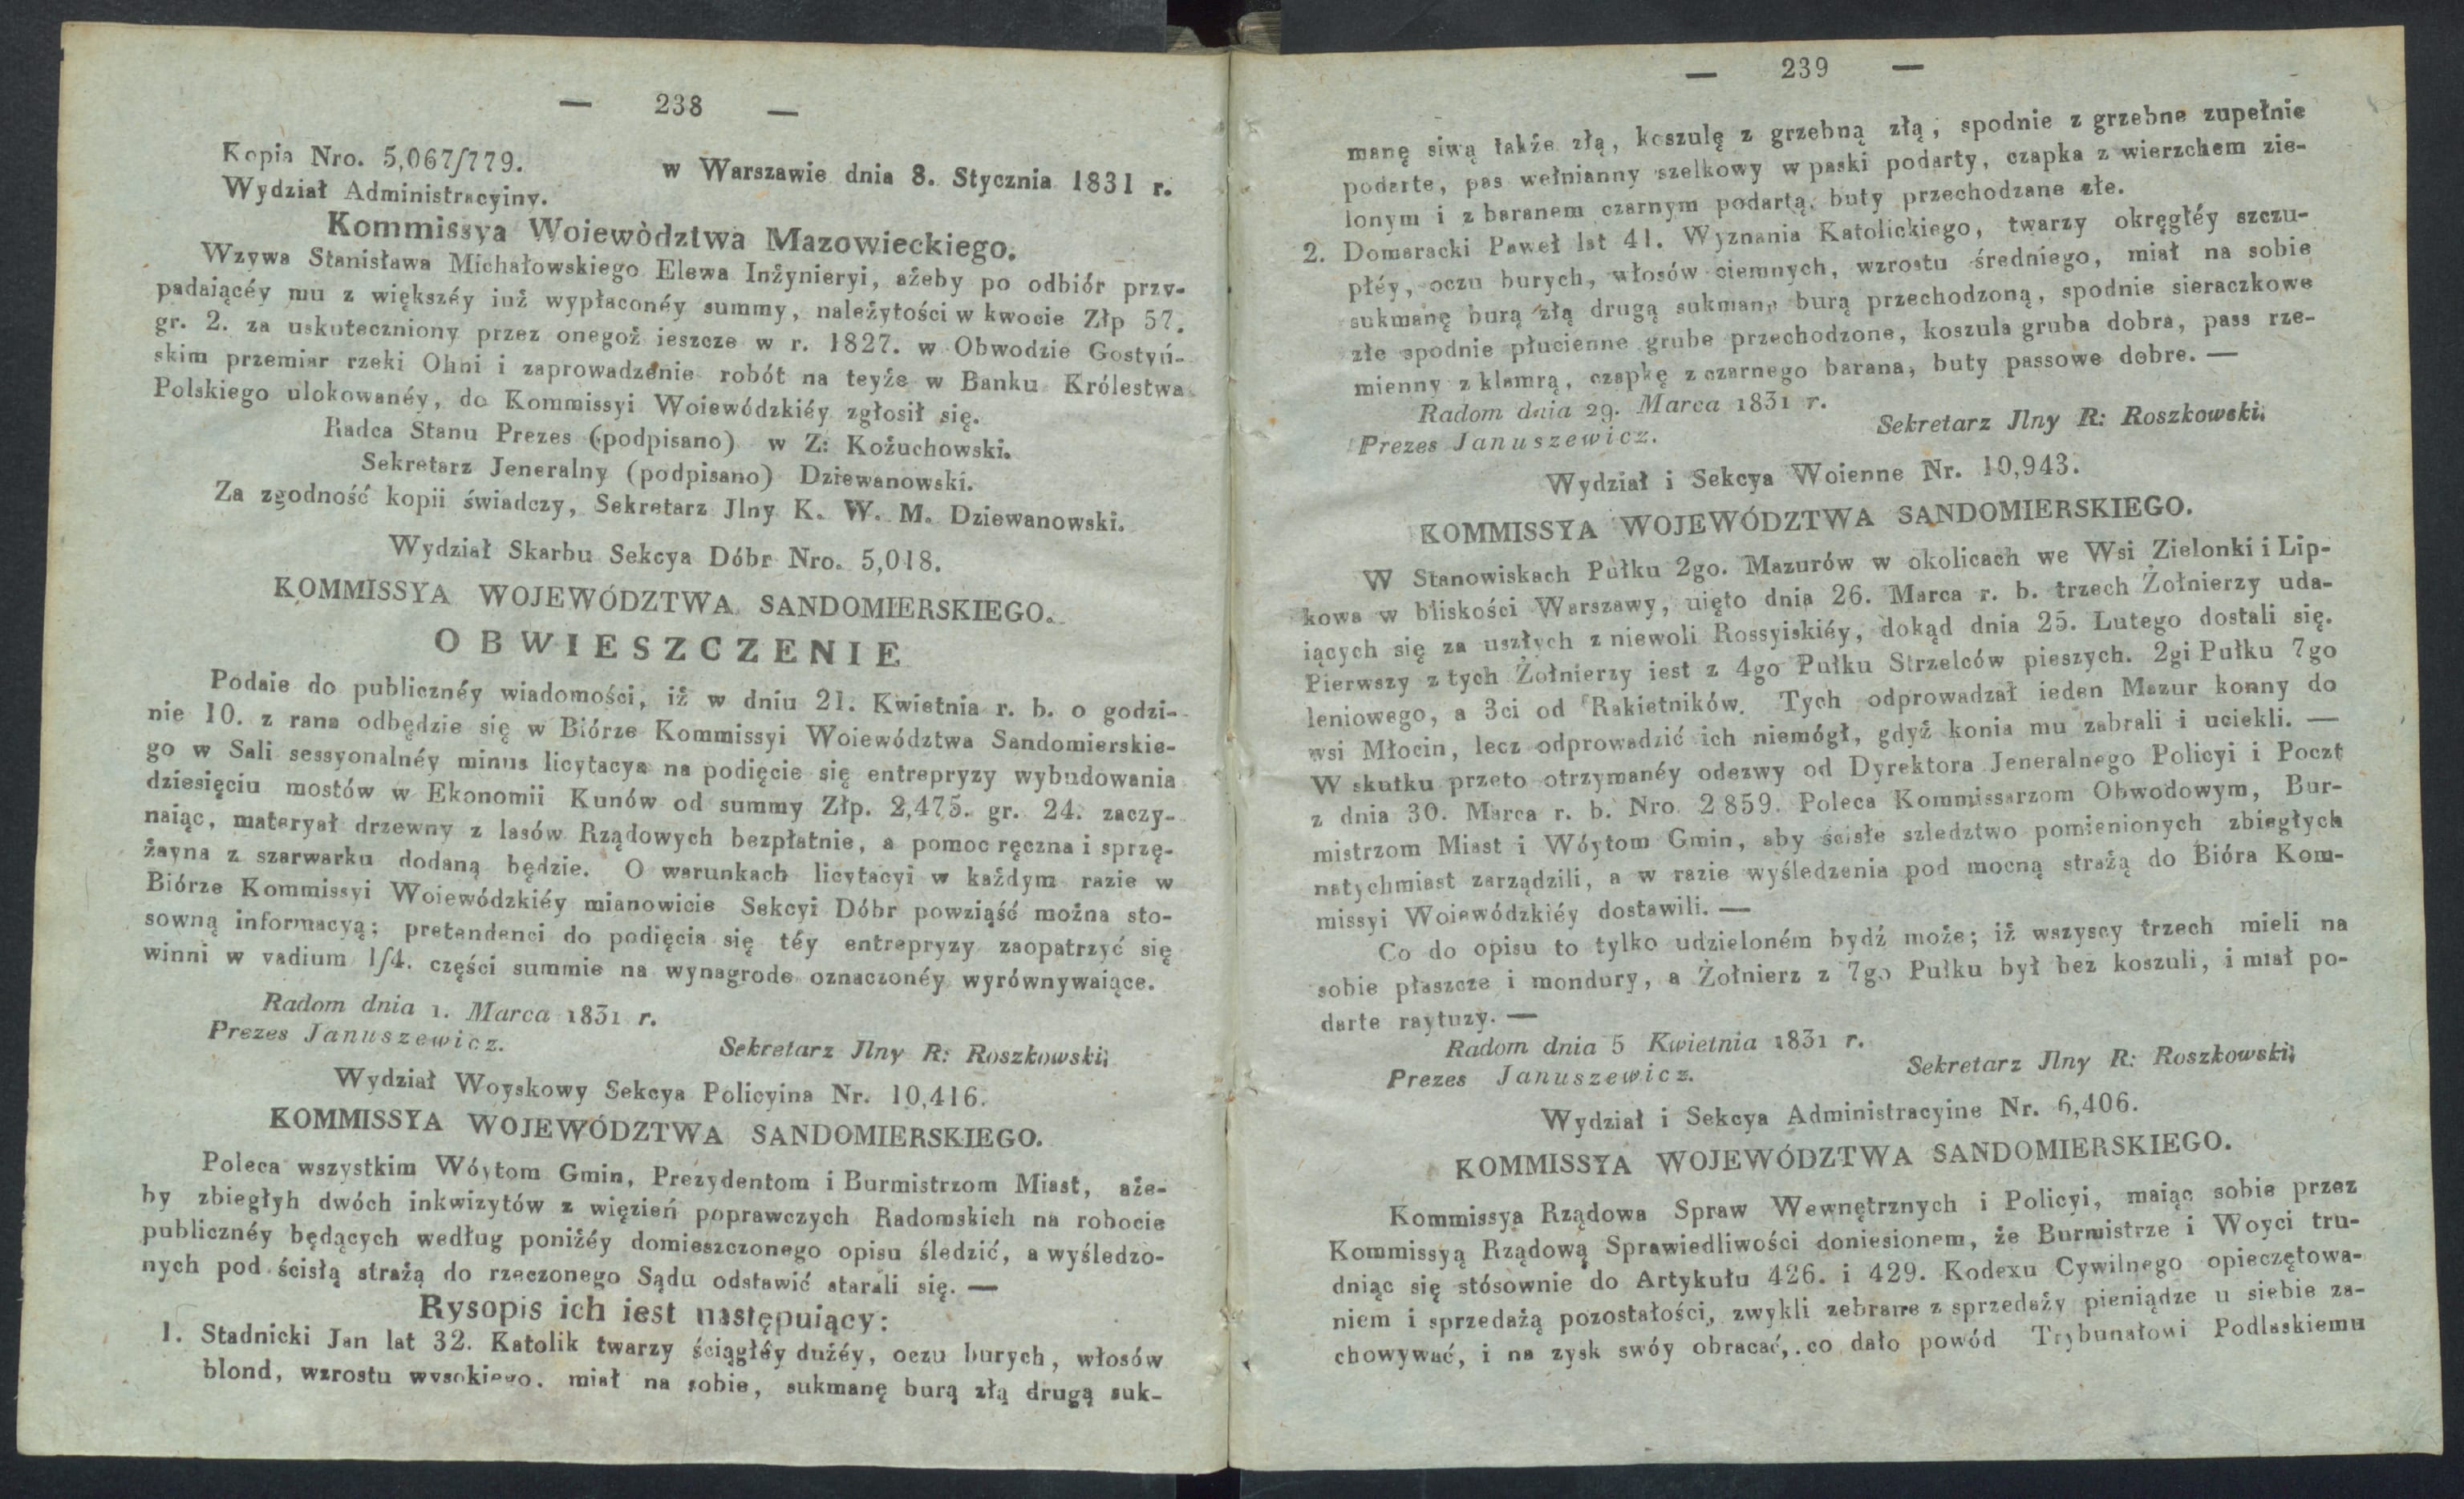 — 238 —
Kopia Nro. 5,067/779.
w Warszawie dnia 8. Stycznia 1831 r.
Wydział Administracyiny.
Kommissya Woiewòdztwa Mazowieckiego.
Wzywa Stanisława Michałowskiego Elewa Inżynieryi, ażeby po odbiór przy-
padaiącéy mu z większéy iuż wypłaconéy summy, należytości w kwocie Złp 57.
gr. 2. za uskuteczniony przez onegoż ieszcze w r. 1827. w Obwodzie Gostyń-
skim przemiar rzeki Ohni i zaprowadzenie robót na teyże w Banku Królestwa
Polskiego ulokowanéy, do Kommissyi Woiewódzkiéy zgłosił się.
Radca Stanu Prezes (podpisano) w Z: Kożuchowski.
Sekretarz Jeneralny (podpisano) Dziewanowski.
Za zgodność kopii świadczy, Sekretarz Jlny K. W. M. Dziewanowski.
Wydział Skarbu Sekcya Dóbr Nro. 5,018.
KOMMISSYA WOJEWÓDZTWA SANDOMIERSKIEGO.
OBWIESZCZENIE
Podaie do publicznéy wiadomości, iż w dniu 21. Kwietnia r. b. o godzi-
nie 10. z rana odbędzie się w Biórze Kommissyi Woiewództwa Sandomierskie-
go w Sali sessyonalnéy minus licytacya na podięcie się entrepryzy wybudowania
dziesięciu mostów w Ekonomii Kunów od summy Złp. 2,475. gr. 24. zaczy-
naiąc, materyał drzewny z lasów Rządowych bezpłatnie, a pomoc ręczna i sprzę-
żayna z szarwarku dodaną będzie. O warunkach licytacyi w każdym razie w
Biórze Kommissyi Woiewódzkiéy mianowicie Sekcyi Dóbr powziąść można sto-
sowną informacyą; pretendenci do podięcia się téy entrepryzy zaopatrzyć się
winni w vadium 1/4. części summie na wynagrode oznaczonéy wyrównywaiące.
Radom dnia 1. Marca 1831 r.
Prezes Januszewicz.
Sekretarz Jlny R: Roszkowski;
Wydział Woyskowy Sekcya Policyina Nr. 10,416.
KOMMISSYA WOJEWÓDZTWA SANDOMIERSKIEGO.
Poleca wszystkim Wóytom Gmin, Prezydentom i Burmistrzom Miast, aże-
by zbiegłyh dwóch inkwizytów z więzień poprawczych Radomskich na robocie
publicznéy będących według poniżéy domieszczonego opisu śledzić, a wyśledzo-
nych pod ścisłą strażą do rzeczonego Sądu odstawić starali się. —
Rysopis ich iest następuiący:
1. Stadnicki Jan lat 32. Katolik twarzy ściągłéy dużéy, oczu burych, włosów
blond, wzrostu wysokiego. miał na sobie, sukmanę burą złą drugą suk-
— 239 —
manę siwą także złą, koszulę z grzebną złą, spodnie z grzebne zupełnie
podarte, pas wełnianny szelkowy w paski podarty, czapka z wierzchem zie-
lonym i z baranem czarnym podartą, buty przechodzane złe.
2. Domaracki Paweł lat 41. Wyznania Katolickiego, twarzy okręgłéy szczu-
płéy, oczu burych, włosów ciemnych, wzrostu średniego, miał na sobie
sukmanę burą złą drugą sukmanę burą przechodzoną, spodnie sieraczkowe
złe spodnie płucienne grube przechodzone, koszula gruba dobra, pass rze-
mienny z klamrą, czapkę z czarnego barana, buty passowe dobre. —
Radom dnia 29. Marca 1831 r.
Prezes Januszewicz.
Sekretarz Jlny R: Roszkowski.
Wydział i Sekcya Woienne Nr. 10,943.
KOMMISSYA WOJEWÓDZTWA SANDOMIERSKIEGO.
W Stanowiskach Pułku 2go. Mazurów w okolicach we Wsi Zielonki i Lip-
kowa w bliskości Warszawy, uięto dnia 26. Marca r. b. trzech Żołnierzy uda-
iących się za uszłych z niewoli Rossyiskiéy, dokąd dnia 25. Lutego dostali się.
Pierwszy z tych Żołnierzy iest z 4go Pułku Strzelców pieszych. 2gi Pułku 7go
leniowego, a 3ci od Rakietników. Tych odprowadzał ieden Mazur konny do
wsi Młocin, lecz odprowadzić ich niemógł, gdyż konia mu zabrali i uciekli. —
W skutku przeto otrzymanéy odezwy od Dyrektora Jeneralnego Policyi i Poczt
z dnia 30. Marca r. b. Nro. 2859. Poleca Kommissarzom Obwodowym, Bur-
mistrzom Miast i Wóytom Gmin, aby ścisłe szledztwo pomienionych zbiegłych
natychmiast zarządzili, a w razie wyśledzenia pod mocną strażą do Bióra Kom-
missyi Woiewódzkiéy dostawili. —
Co do opisu to tylko udzieloném bydź może; iż wszyscy trzech mieli na
sobie płaszcze i mondury, a Żołnierz z 7go Pułku był bez koszuli, i miał po-
darte raytuzy. —
Radom dnia 5 Kwietnia 1831 r.
Prezes Januszewicz.
Sekretarz Jlny R: Roszkowski;
Wydział i Sekcya Administracyine Nr. 6,406.
KOMMISSYA WOJEWÓDZTWA SANDOMIERSKIEGO.
Kommissya Rządowa Spraw Wewnętrznych i Policyi, maiąc sobie przez
Kommissyą Rządową Sprawiedliwości doniesionem, że Burmistrze i Woyci tru-
dniąc się stósownie do Artykułu 426. i 429. Kodexu Cywilnego opieczętowa-
niem i sprzedażą pozostałości, zwykli zebrane z sprzedaży pieniądze u siebie za-
chowywać, i na zysk swóy obracać, co dało powód Trybunałowi Podlaskiemu